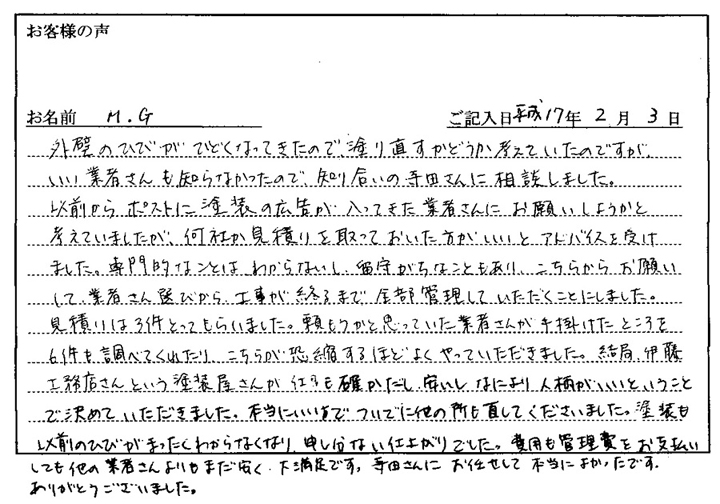 お客様の声
お名前 M.G ご記入日 平成17年 2月 3日
外壁のひびがひどくなってきたので、塗り直すかどうか考えていたのですが、
いい業者さんも知らなかったので、知り合いの寺田さんに相談しました。
以前からポストに塗装の広告が入ってきた業者さんにお願いしようかと
考えていましたが、何社か見積りを取っておいた方がいいとアドバイスを受け
ました。専門的なことはわからないし、留守がちなこともあり、こちらからお願い
して、業者さん選びから、工事が終るまで全部管理していただくことにしました。
見積りは3件とってもらいました。頼もうかと思っていた業者さんが手掛けたところを
6件も調べてくれたり、こちらが恐縮するほどよくやっていただきました。結局、伊藤
工務店さんという塗装屋さんが仕事も確かだし、安いしなにより人柄がいいということ
で決めていただきました。本当にいい方でついでに他の所も直してくださいました。塗装も
以前のひびがまったくわからなくなり、申し分ない仕上がりでした。費用も管理費をお支払い
しても他の業者さんよりもまだ安く、大満足です。寺田さんにお任せして本当によかったです。
ありがとうございました。